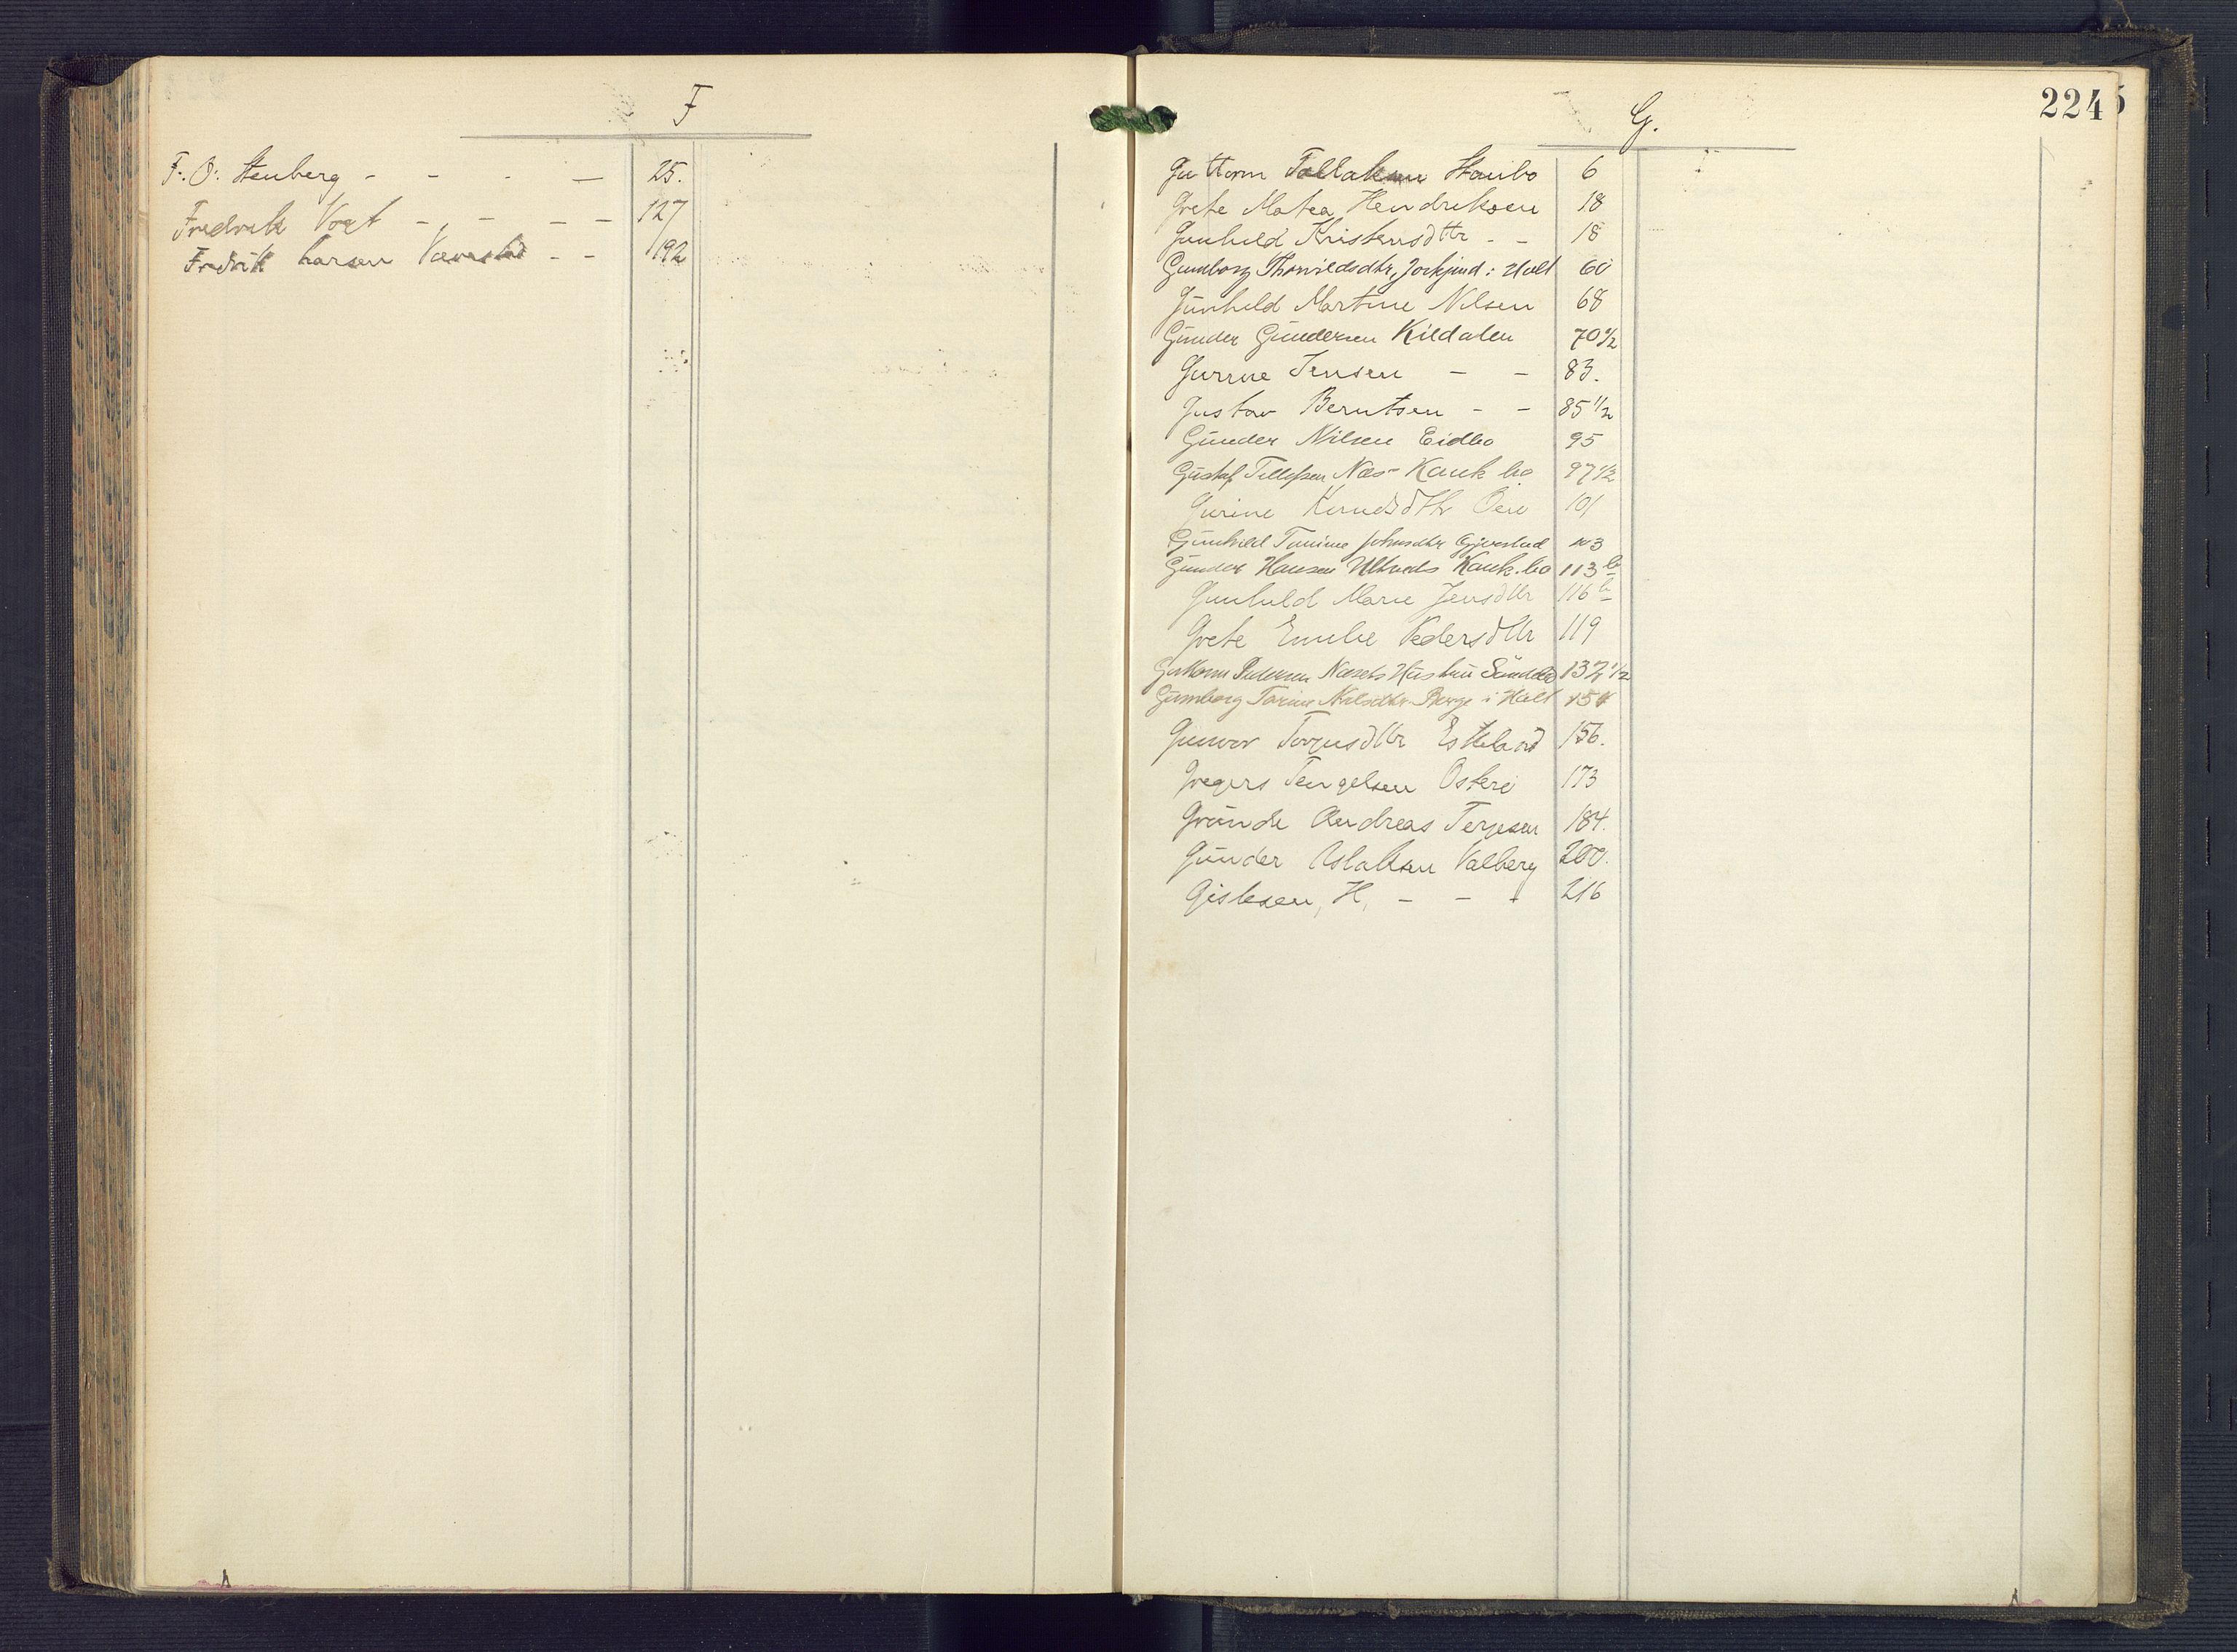 F
F. O. Stenberg - - - — 25.
Fredrik Vogt - - - - 127
Fredrik Larsen Vævestad - - 192
224
G.
Guttorm Tallaksen Staubo 6
Grete Matea Hendriksen 18
Gunhild Kristensdttr - - 18
Gunborg Thorvildsdtr, i Holt 60
Gunhild Martine Nilsen 68
Gunder Gundersen Kildalen 70 1/2
Gurine Jensen - - 83.
Gustav Berntsen - - 85 1/2
Gunder Nilsen Eidbo 95
Gustaf Tellefsen Næs- Kauk. bo 97 1/2
Gurine Knudsdttr Oen 101
Gunhild Tomine Johnsdtr Gjevestad 103
Gunder Hansen Ultveds Kauk. bo 113 b
Gunhild Marie Jensdttr 116 b
Grete Emilie Pedersdttr 119
Guttorm Pedersen Næsets Hustru Sundebo 137 1/2
Gunborg Torine Nilsdtr. Berge i Holt 154
Gunvor Torjusdttr Esteland 156.
Gregers Tengelsen Osterø 173
Grunde Andreas Terjesen 184.
Gunder Aslaksen Valberg 200.
Gislesen, H, - - - 216